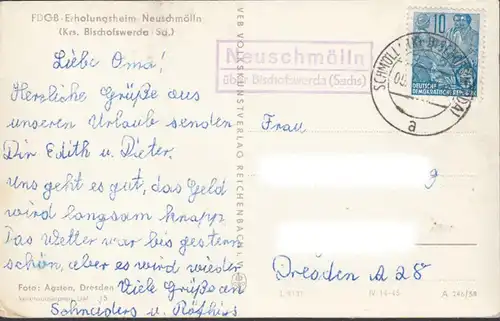 FDGB-Erholungsheim Neuschmölln
(Krs. Bischofswerda-Sa.)
Liebe Oma!
Herzliche Grüße aus
unseren Urlaub senden
Dir Edith u. Dieter.
Uns geht es gut, das Geld
wird langsam knapp.
Das Wetter war bis gestern
schön, aber es wird wieder.
Viele Grüße an
Schnaders u.
Foto: Agsten, Dresden
VEB VOLKSKUNSTVERLAG REICHENBACH
Neuschmölln
über Bischofswerda (Sachs)
10
DEUTSCHE
DEMOKRATISCHE
a
Frau
g
Dresden A 28
IV-14-45
A 246/58